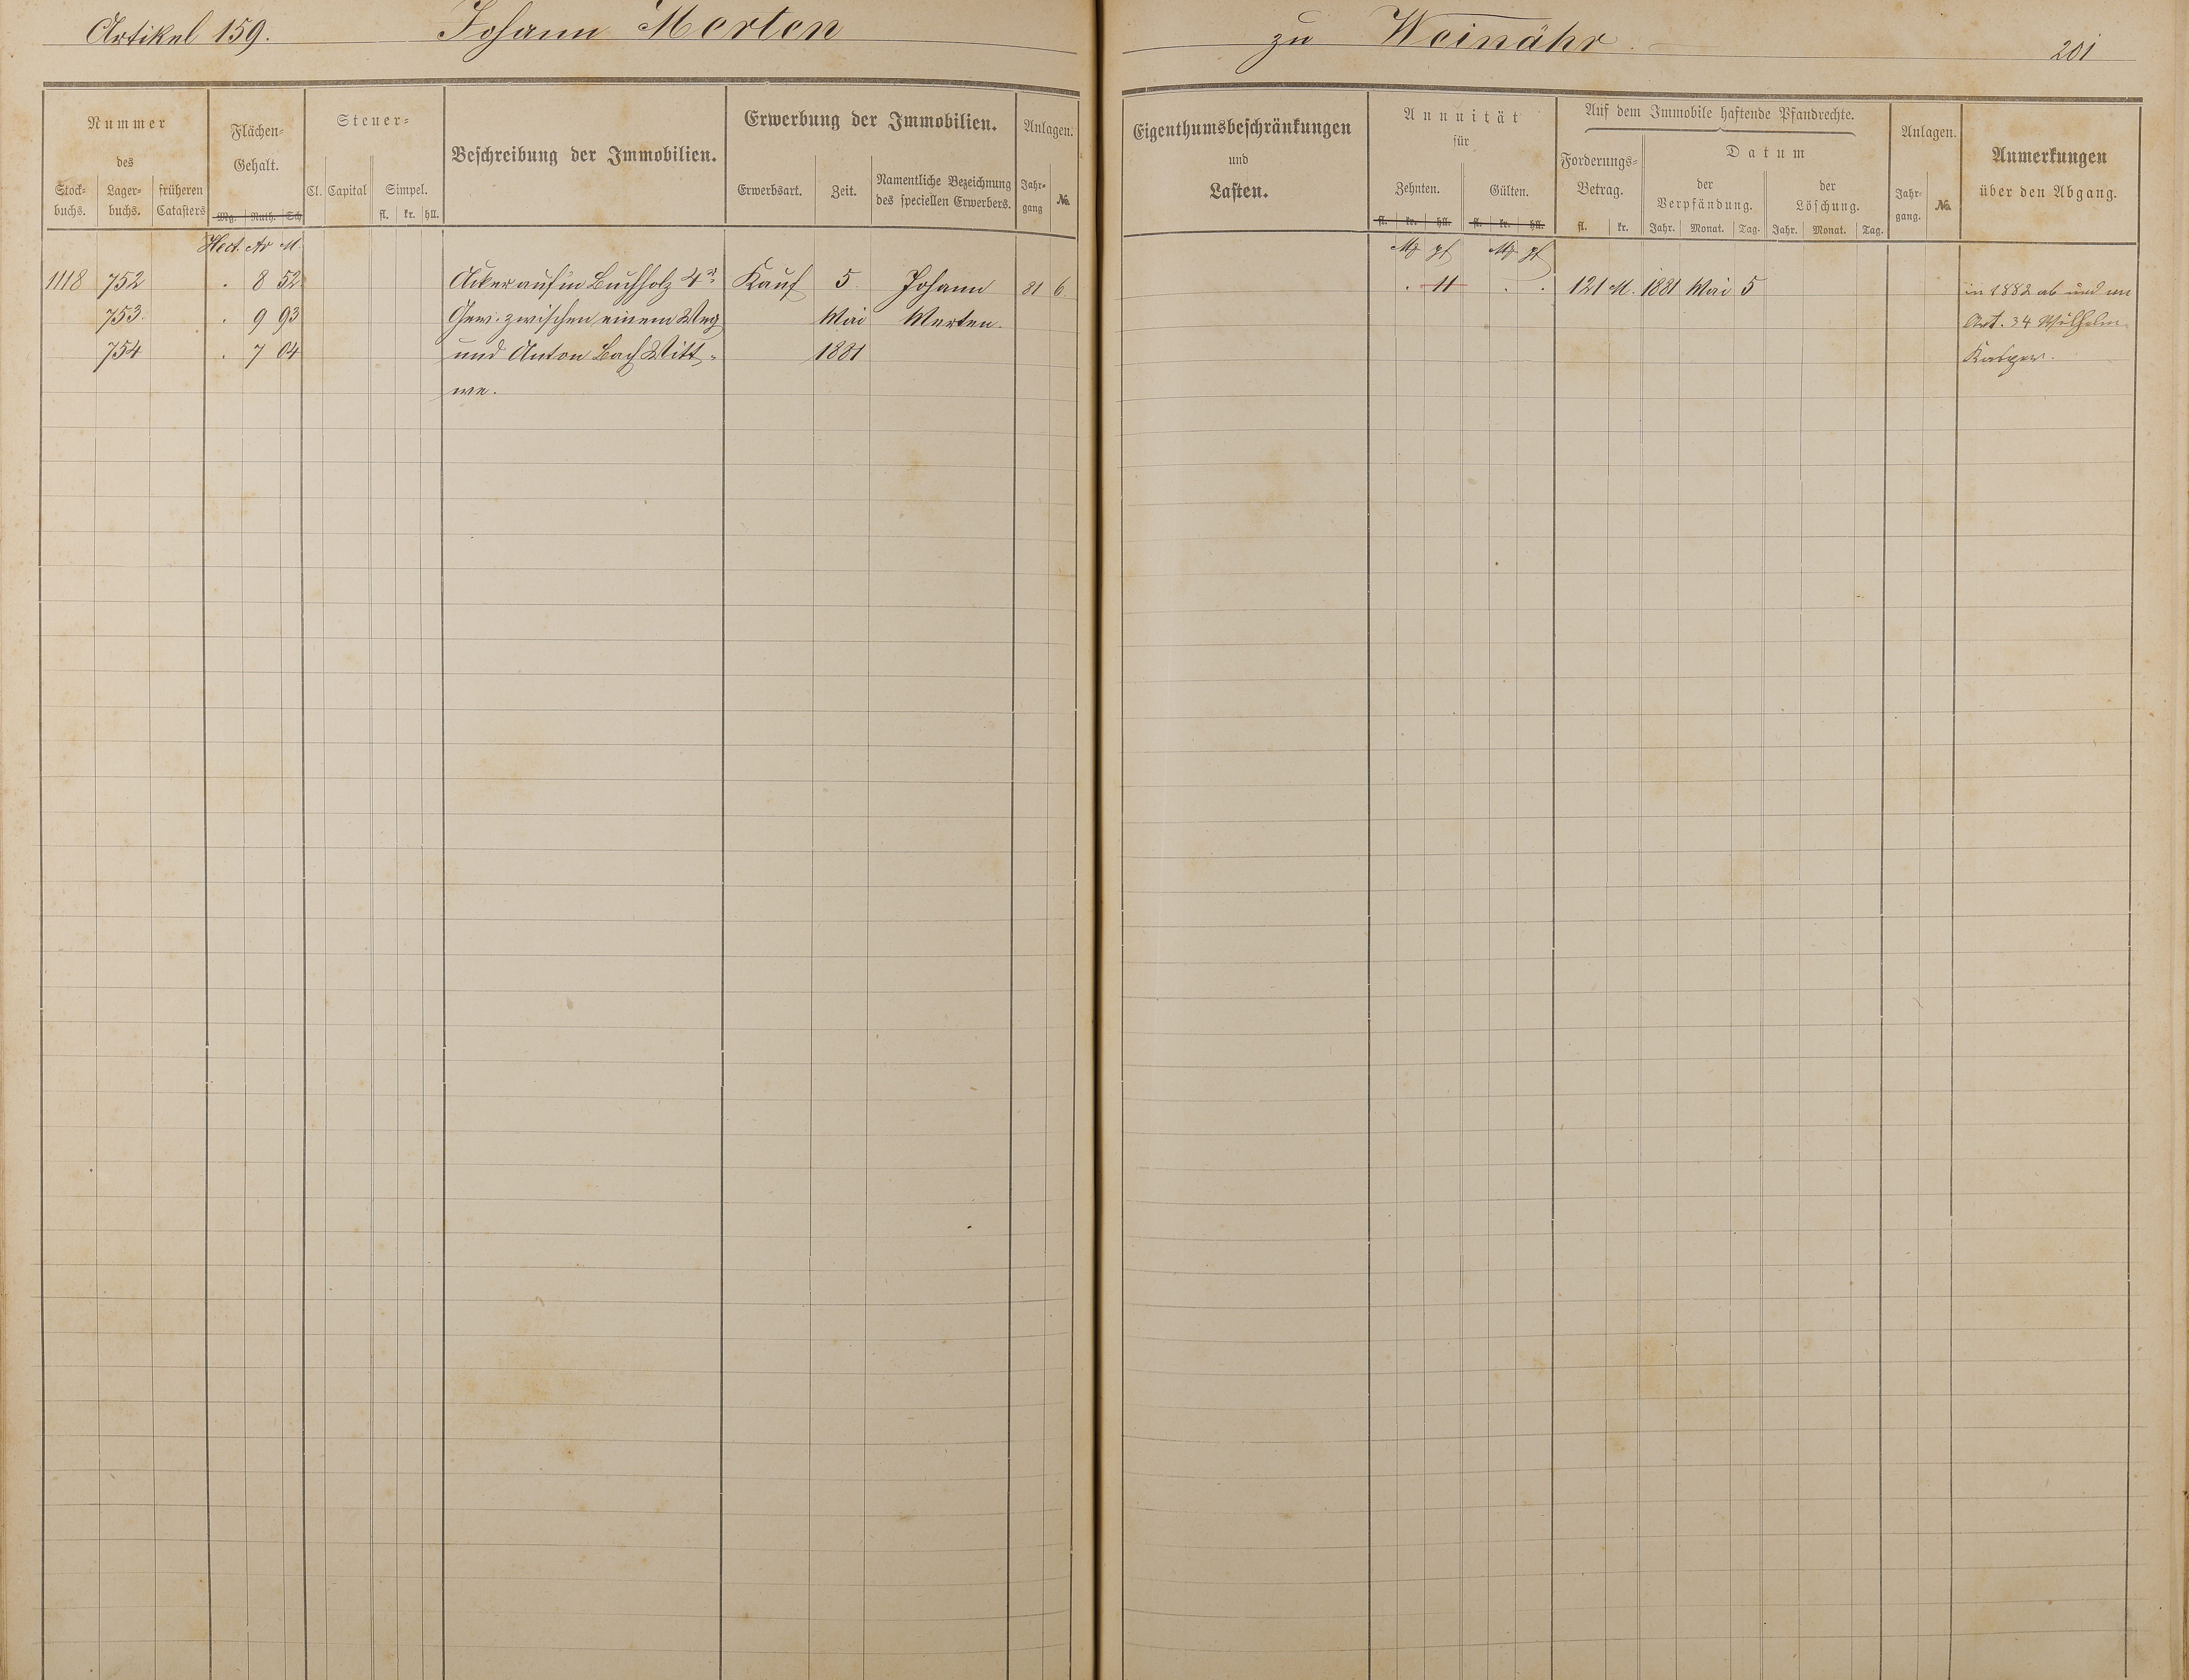 Artikel 159. Johann Merten zu Weinähr. 201
Nummer
des
Stock-
buchs.
Lager-
buchs.
früheren
Catasters
Flächen-
Gehalt.
Mg. Ruth. Sch
Steuer-
Cl. Capital
Simpel.
fl. kr. hll.
Beschreibung der Immobilien.
Erwerbung der Immobilien.
Erwerbsart.
Zeit.
Namentliche Bezeichnung
des speciellen Erwerbers.
Anlagen.
Jahr-
gang
No.
Eigenthumsbeschränkungen
und
Lasten.
Annuität
für
Zehnten.
Gülten.
fl. kr. hll. fl. kr. hll.
Auf dem Immobile haftende Pfandrechte.
Forderungs-
Betrag.
fl. kr.
Datum
der
Verpfändung.
Jahr. Monat. Tag.
der
Löschung.
Jahr. Monat. Tag.
Anlagen.
Jahr-
gang.
No.
Anmerkungen
über den Abgang.
Hect. Ar M. Mk pf Mk pf
1118 752 . 8 52 Acker auf'm Buchholz 4r Kauf 5. Johann 81 6. . 11 . . 121 M. 1881 Mai 5 in 1882 ab und an
753. . 9 93 Gew. zwischen einem Weg Mai Merten. Art. 34 Wilhelm
754 . 7 04 und Anton Bach Witt- 1881 Kasper.
we.